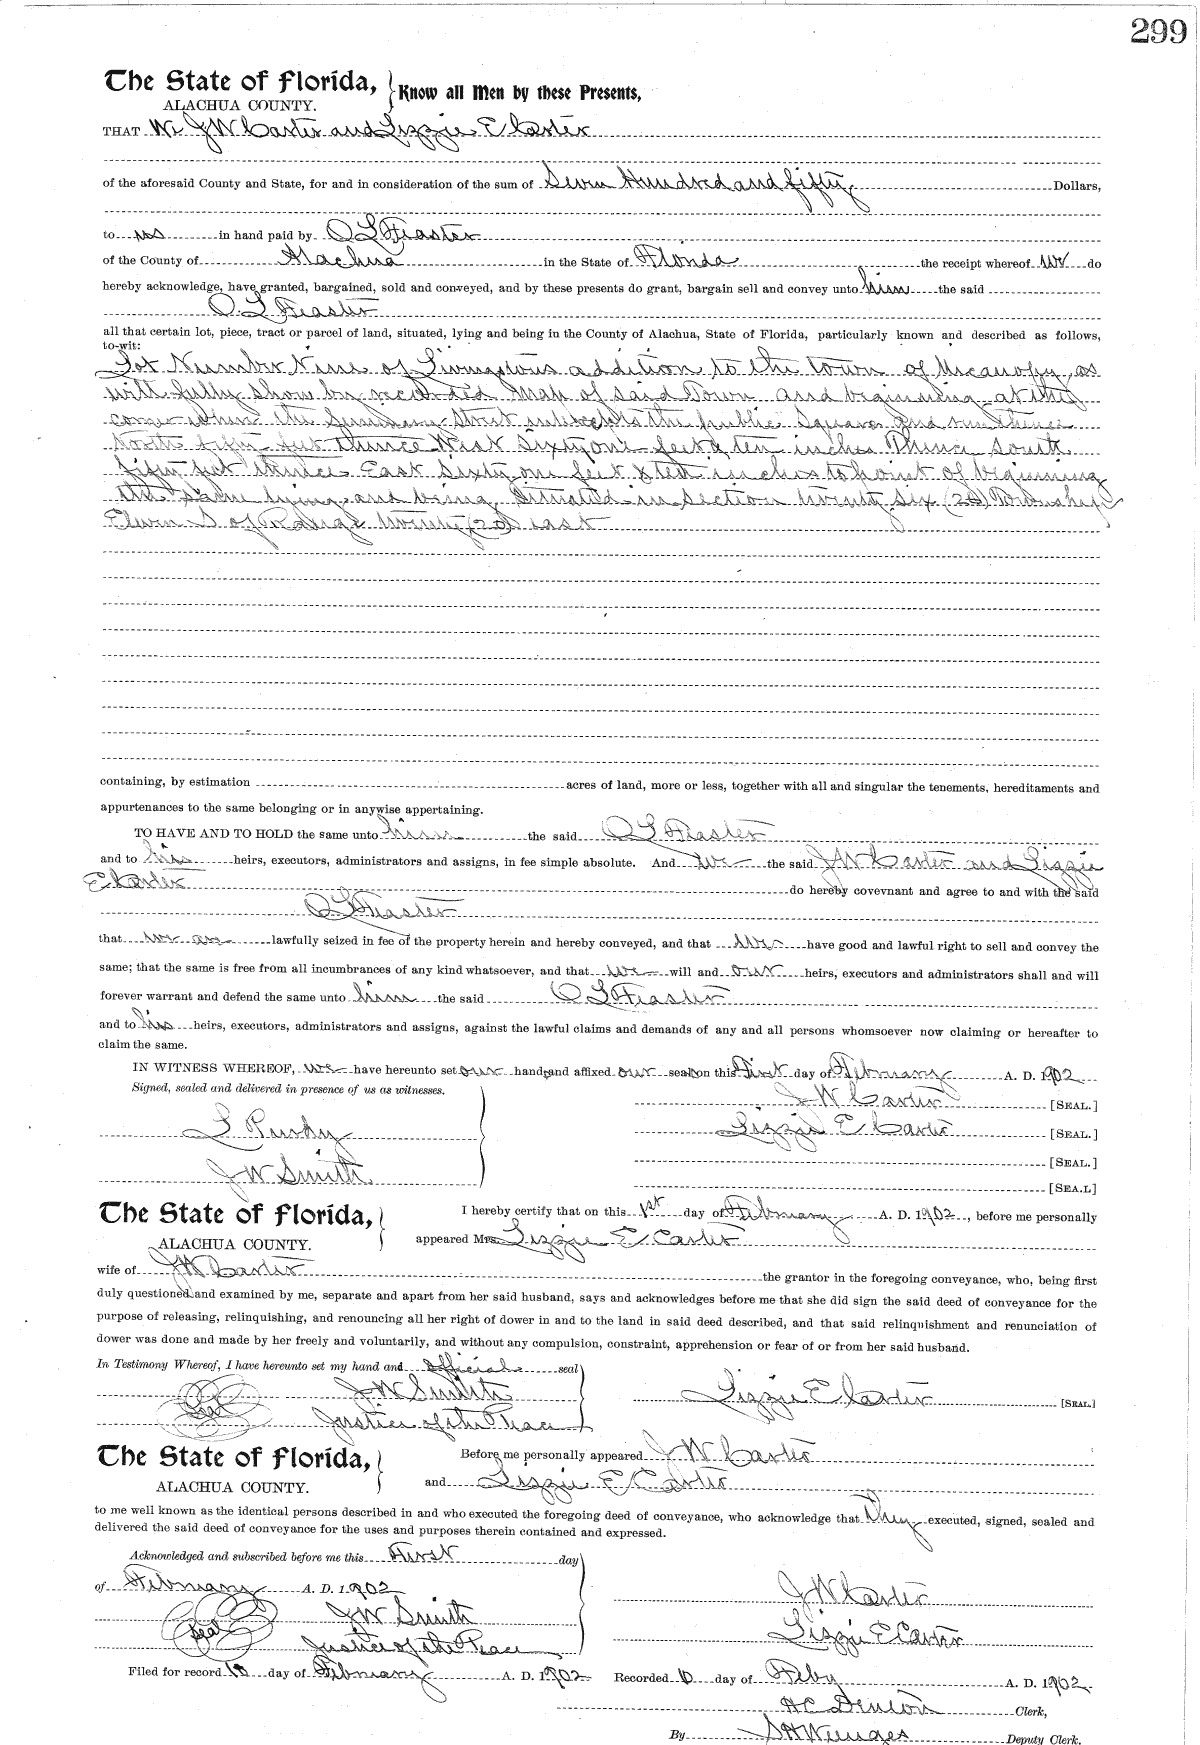 299
The State of Florida,
ALACHUA COUNTY.
Know all Men by these Presents,
THAT We J W Carter and Lizzie E Carter
of the aforesaid County and State, for and in consideration of the sum of Seven Hundred and fifty Dollars,
to us in hand paid by O L Feaster
of the County of Alachua in the State of Florida the receipt whereof we do
hereby acknowledge, have granted, bargained, sold and conveyed, and by these presents do grant, bargain sell and convey unto him the said
O L Feaster
all that certain lot, piece, tract or parcel of land, situated, lying and being in the County of Alachua, State of Florida, particularly known and described as follows,
to-wit:
Lot Number Nine of Livingstons addition to the town of Micanopy as
will fully show by recorded Map of said Town and beginning at the
corner where the Street the public Square and run thence
North fifty feet thence West Sixty one feet & ten inches Thence South
fifty feet thence East Sixty one feet & ten inches to point of beginning
the same lying and being Situated in section twenty Six (26) Township
Eleven S of Range twenty (20) east
containing, by estimation acres of land, more or less, together with all and singular the tenements, hereditaments and
appurtenances to the same belonging or in anywise appertaining.
TO HAVE AND TO HOLD the same unto him the said O L Feaster
and to his heirs, executors, administrators and assigns, in fee simple absolute. And we the said J W Carter and Lizzie
E Carter do hereby covevnant and agree to and with the said
O L Feaster
that we are lawfully seized in fee of the property herein and hereby conveyed, and that we have good and lawful right to sell and convey the
same; that the same is free from all incumbrances of any kind whatsoever, and that we will and our heirs, executors and administrators shall and will
forever warrant and defend the same unto him the said O L Feaster
and to his heirs, executors, administrators and assigns, against the lawful claims and demands of any and all persons whomsoever now claiming or hereafter to
claim the same.
IN WITNESS WHEREOF, we have hereunto set our hands and affixed our seal on this First day of February A. D. 1902
Signed, sealed and delivered in presence of us as witnesses.
J W Carter [SEAL.]
Lizzie E Carter [SEAL.]
[SEAL.]
[SEA.L]
J W Smith
The State of Florida,
ALACHUA COUNTY.
I hereby certify that on this 1st day of February A. D. 1902, before me personally
appeared Mrs. Lizzie E Carter
wife of J W Carter the grantor in the foregoing conveyance, who, being first
duly questioned and examined by me, separate and apart from her said husband, says and acknowledges before me that she did sign the said deed of conveyance for the
purpose of releasing, relinquishing, and renouncing all her right of dower in and to the land in said deed described, and that said relinquishment and renunciation of
dower was done and made by her freely and voluntarily, and without any compulsion, constraint, apprehension or fear of or from her said husband.
In Testimony Whereof, I have hereunto set my hand and official seal
Seal J W Smith
Justice of the Peace
Lizzie E Carter [SEAL.]
The State of Florida,
ALACHUA COUNTY.
Before me personally appeared J W Carter
and Lizzie E Carter
to me well known as the identical persons described in and who executed the foregoing deed of conveyance, who acknowledge that They executed, signed, sealed and
delivered the said deed of conveyance for the uses and purposes therein contained and expressed.
Acknowledged and subscribed before me this First day
of February A. D. 1902
Seal J W Smith
Justice of the Peace
J W Carter
Lizzie E Carter
Filed for record 10 day of February A. D. 1902 Recorded 10 day of Feby A. D. 1902
H C Denton Clerk,
By S H Wienges Deputy Clerk.